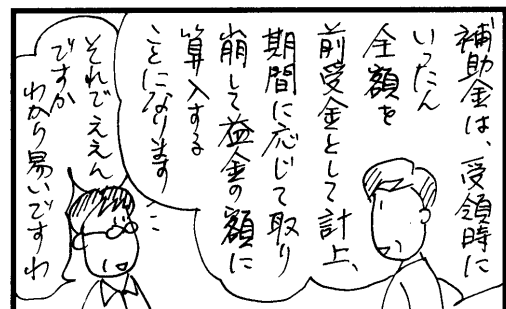 補助金は、受領時に
いったん
全額を
前受金として計上、
期間に応じて取り
崩して益金の額に
算入する
ことになります
それでええん
ですか
わかり易いですわ